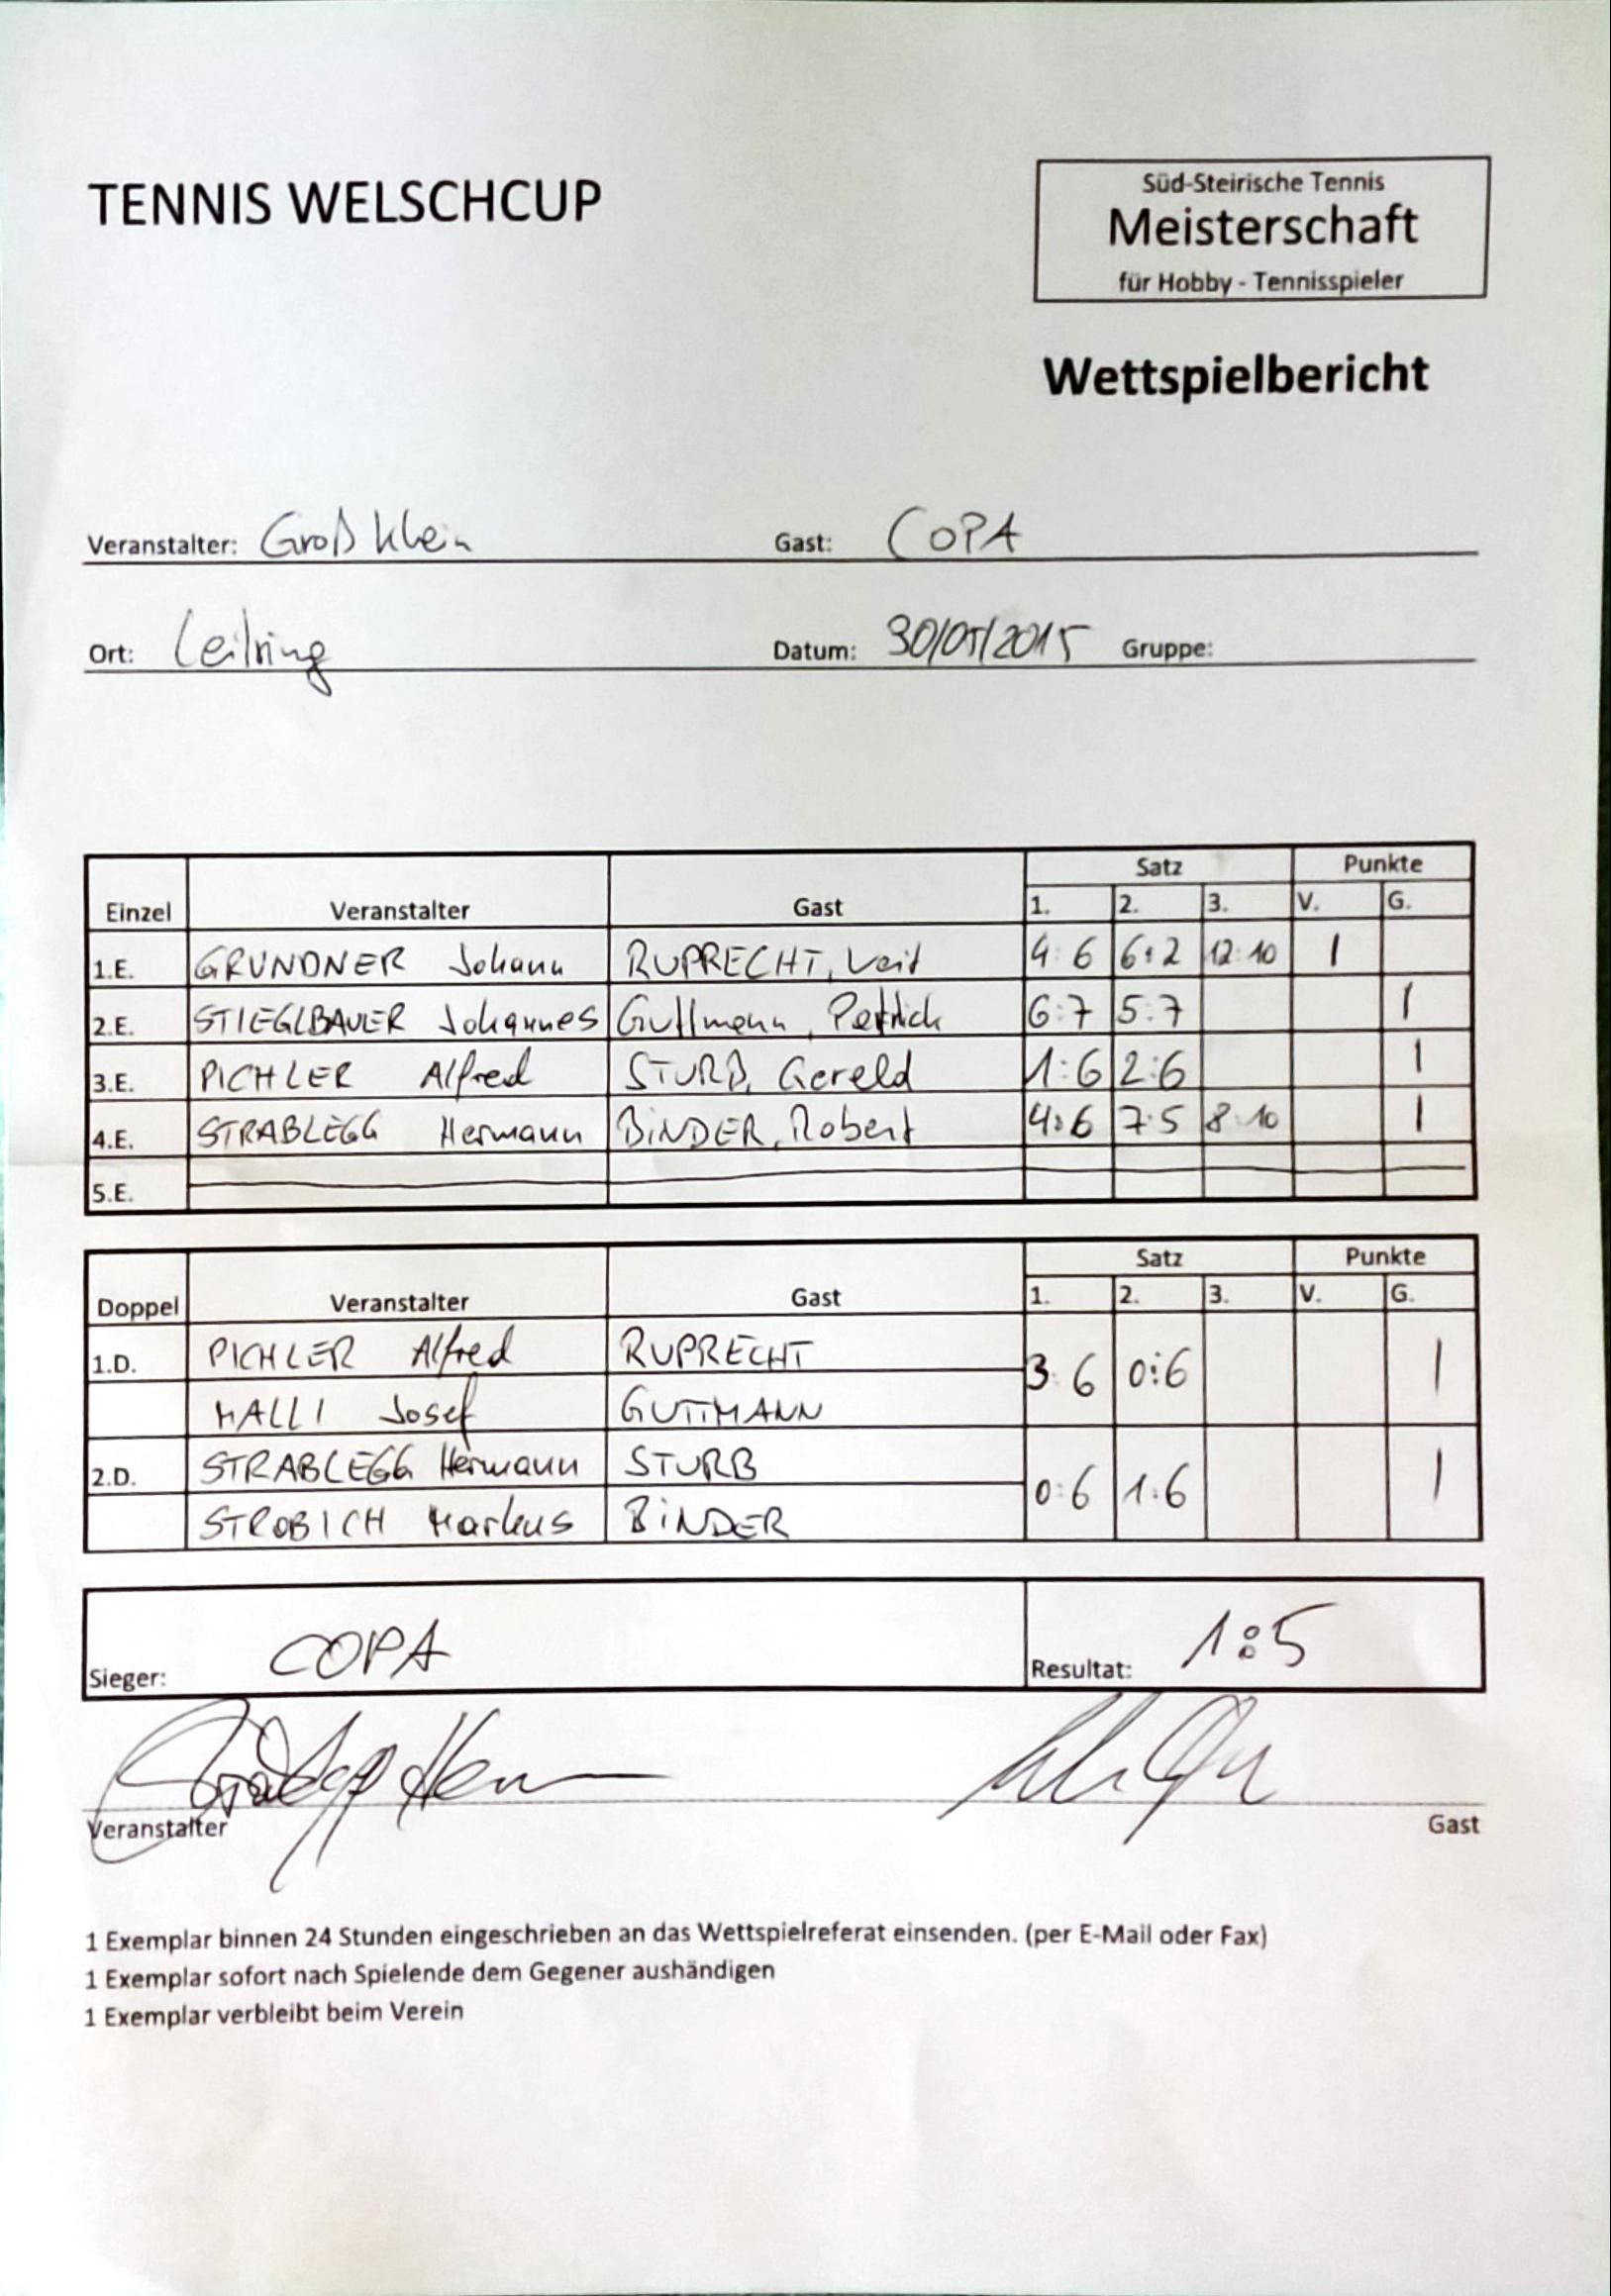 TENNIS WELSCHCUP
Süd-Steirische Tennis
Meisterschaft
für Hobby - Tennisspieler
Wettspielbericht
Veranstalter: Großklein Gast: COPA
Ort: Leibring Datum: 30/05/2015 Gruppe:
Satz Punkte
Einzel Veranstalter Gast 1. 2. 3. V. G.
1.E. GRUNDNER Johann RUPRECHT, Veit 4:6 6:2 12:10 1
2.E. STIEGLBAUER Johannes Guttmann, Patrick 6:7 5:7 1
3.E. PICHLER Alfred STURB, Gerald 1:6 2:6 1
4.E. STRABLEGG Hermann BINDER, Robert 4:6 7:5 8:10 1
5.E.
Satz Punkte
Doppel Veranstalter Gast 1. 2. 3. V. G.
1.D. PICHLER Alfred RUPRECHT 3:6 0:6 1
MALLI Josef GUTTMANN
2.D. STRABLEGG Hermann STURB 0:6 1:6 1
STROBICH Markus BINDER
Sieger: COPA Resultat: 1:5
Veranstalter Gast
1 Exemplar binnen 24 Stunden eingeschrieben an das Wettspielreferat einsenden. (per E-Mail oder Fax)
1 Exemplar sofort nach Spielende dem Gegener aushändigen
1 Exemplar verbleibt beim Verein